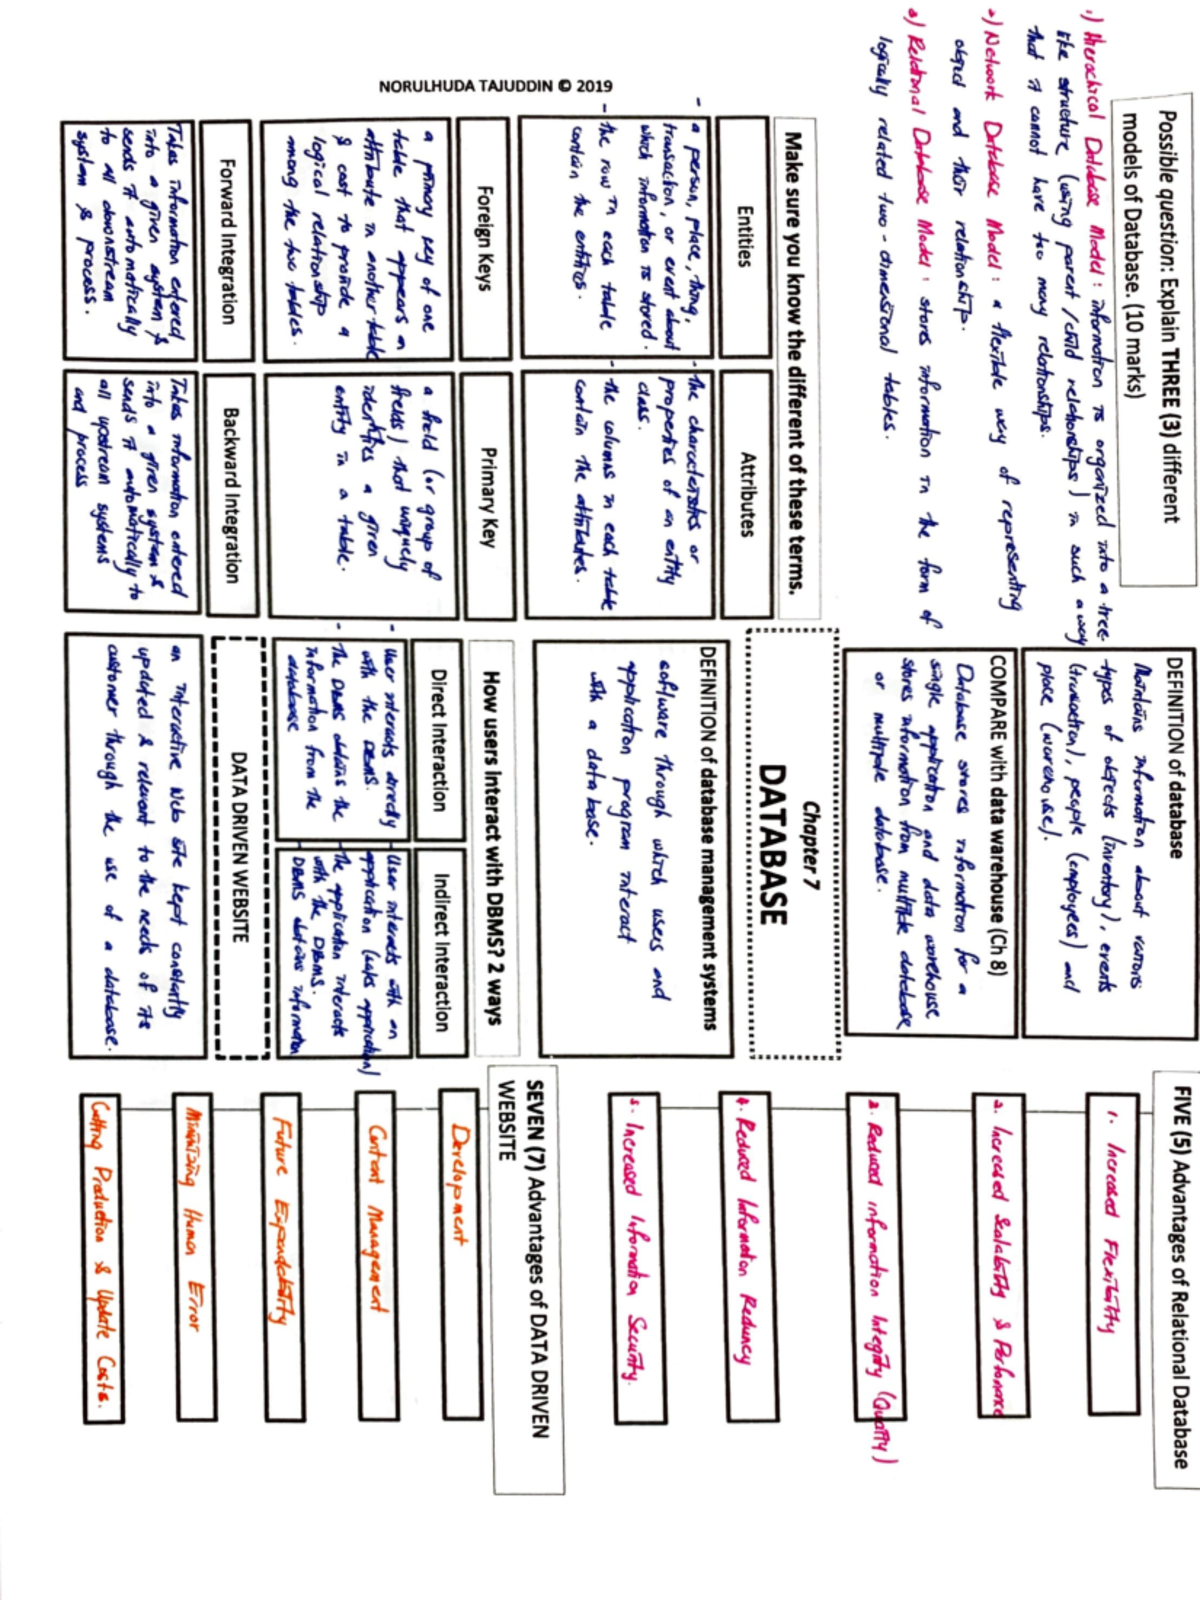 Possible question: Explain THREE (3) different
models of Database. (10 marks)
1) Hierachical Database Model : information is organized into a tree-
like structure (using parent/child relationships) in such a way
that it cannot have too many relationships.
2) Network Database Model : a flexible way of representing
object and their relationship.
3) Relational Database Model : stores information in the form of
logically related two-dimensional tables.
DEFINITION of database
Maintains information about various
types of objects (inventory), events
(transaction), people (employees) and
place (warehouse).
COMPARE with data warehouse (Ch 8)
Database stores information for a
single application and data warehouse
stores information from multiple database
or multiple database.
FIVE (5) Advantages of Relational Database
1. Increased Flexibility
2. Increased Scalability & Performance
3. Reduced information Integrity (Quality)
4. Reduced Information Reduncy
5. Increased Information Security.
Chapter 7
DATABASE
Make sure you know the different of these terms.
Entities
- a person, place, thing,
transaction, or event about
which information is stored.
- the row in each table
contain the entities.
Attributes
- the characteristics or
properties of an entity
class.
- the columns in each table
contain the attributes.
Foreign Keys
a primary key of one
table that appears an
attribute in another table
& cast to provide a
logical relationship
among the two tables.
Primary Key
a field (or group of
fields) that uniquely
identifies a given
entity in a table.
Forward Integration
Takes information entered
into a given system &
sends it automatically
to all downstream
system & process.
Backward Integration
Takes information entered
into a given system &
sends it automatically to
all upstream systems
and process
DEFINITION of database management systems
software through which users and
application program interact
with a database.
How users interact with DBMS? 2 ways
Direct Interaction
- User interacts directly
with the DBMS.
- The DBMS obtains the
information from the
database
Indirect Interaction
- User interacts with an
application (sales application)
- The application interacts
with the DBMS.
- DBMS obtains information
DATA DRIVEN WEBSITE
an interactive Web site kept constantly
updated & relevant to the needs of its
customer through the use of a database.
SEVEN (7) Advantages of DATA DRIVEN
WEBSITE
Development
Content Management
Future Expendability
Minimizing Human Error
Cutting Production & Update Costs.
NORULHUDA TAJUDDIN © 2019